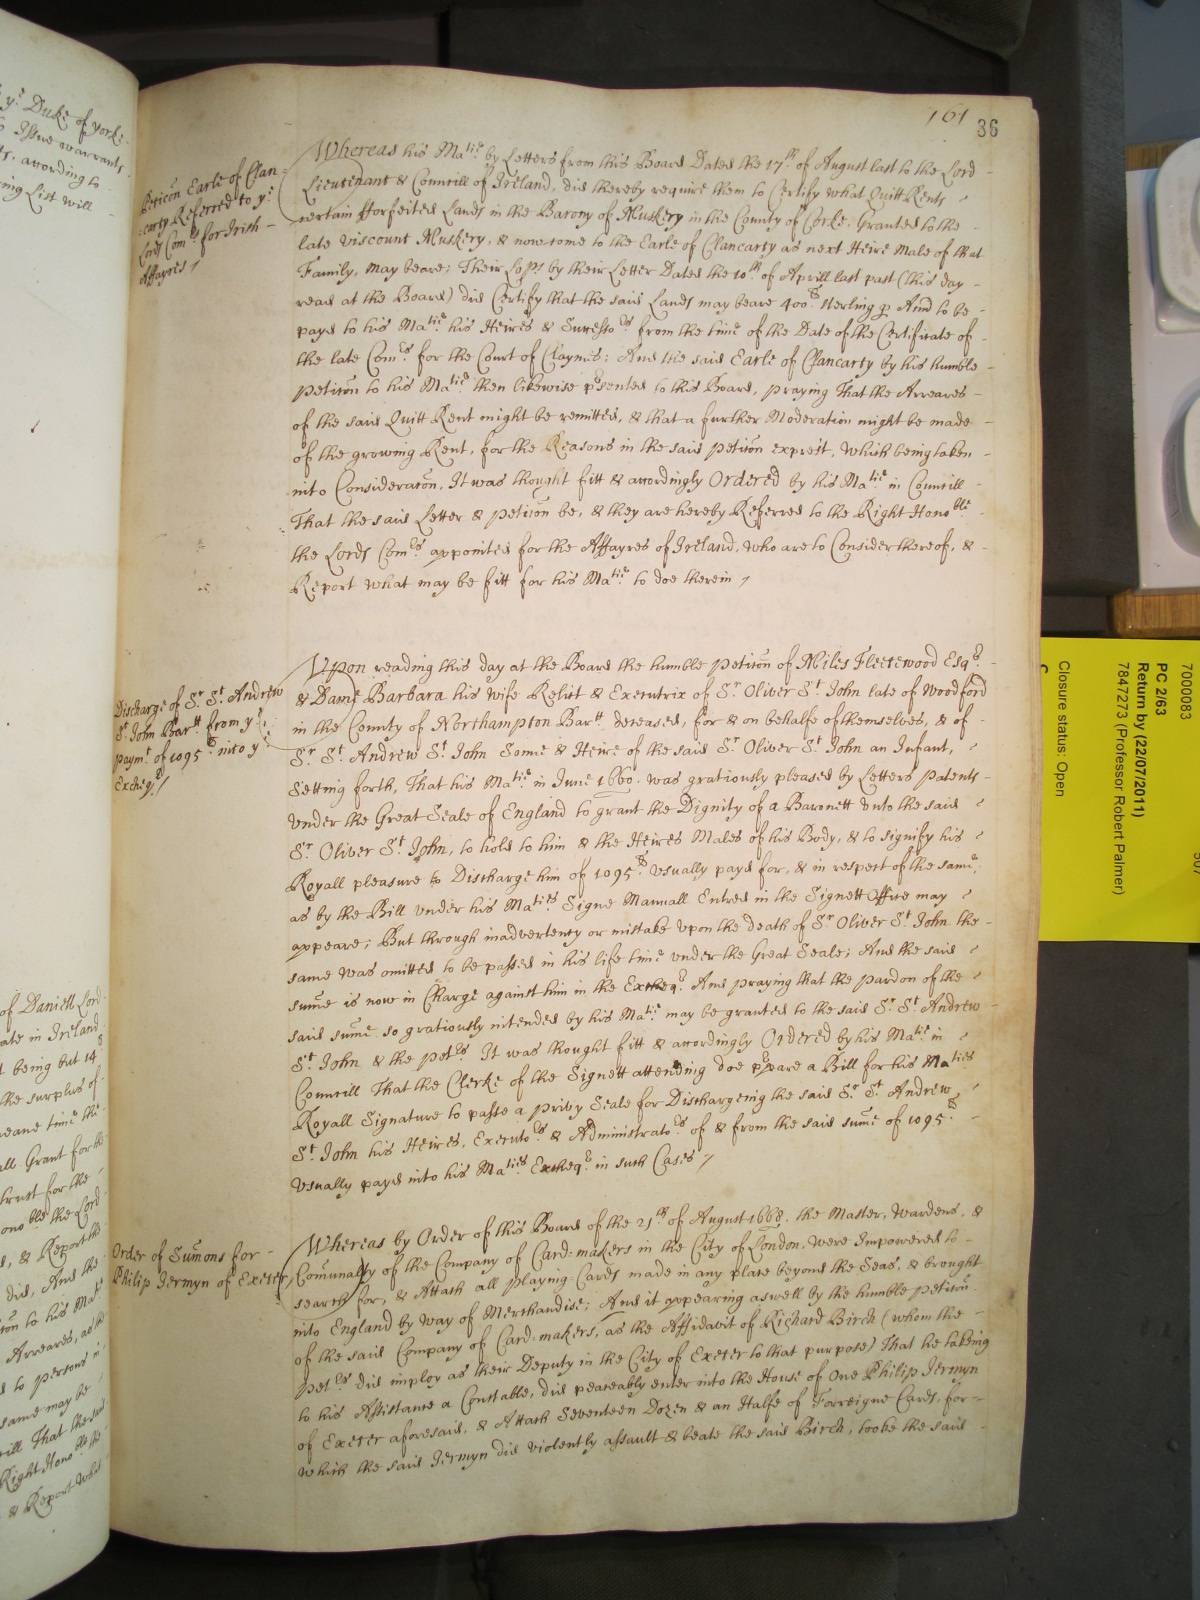 ye Duke of yorke
Issue warrants
according to
ing List will
of Daniell Lord
ate in Ireland
t being but 14s
the surplus of
meane time the
all Grant for the
trust for the
onoble the Lord
s, & Report the
did, And the
ion to his Matie
Arreares, as
d to persons in
same may be
cill That the said
Right Honoble the
& Report what
161
36
Peticōn Earle of Clan-
carty Referred to ye
Lords Comrs for Irish
Affayres
Whereas his Matie by Letters from this Board Dated the 17th of August last to the Lord
Lieutenant & Councill of Ireland, did thereby require them to Certify what Quitt Rents
certain fforfeited Lands in the Barony of Muskery in the County of Corke, Granted to the
late Viscount Muskery, & now come to the Earle of Clancarty as next Heire Male of that
Family, may beare; Their Lopps by their Letter Dated the 10th of Aprill last past (this day
read at the Board) did Certify that the said Lands may beare 400li sterling p Aind to be
payd to his Matie his Heires & Successors from the time of the Date of the Certificate of
the late Comrs for the Court of Claymes; And the said Earle of Clancarty by his humble
Peticōn to his Matie then likewise psented to this Board, praying That the Arreares
of the said Quitt Rent might be remitted, & that a further Moderation might be made
of the growing Rent, for the Reasons in the said Peticōn exprest, Which being taken
into Consideracōn, It was thought fitt & accordingly Ordered by his Matie in Councill
That the said Letter & Peticōn be, & they are hereby Referred to the Right Honoble
the Lords Comrs appointed for the Affayres of Ireland, who are to Consider thereof, &
Report what may be fitt for his Matie to doe therein
Discharge of Sr St Andrew
St John Bartt from ye
paymt of 1095li into ye
Excheqr
Vpon reading this day at the Board the humble Peticōn of Miles Fleetewood Esqr
& Dame Barbara his wife Relict & Executrix of Sr Oliver St John late of Woodford
in the County of Northampton Bartt deceased, for & on behalfe of themselves, & of
Sr St Andrew St John Sonne & Heire of the said Sr Oliver St John an Infant,
Setting forth, That his Matie in June 1660. was gratiously pleased by Letters Patents
vnder the Great Seale of England to grant the Dignity of a Baronett vnto the said
Sr Oliver St John, to hold to him & the Heires Males of his Body, & to signify his
Royall pleasure to Discharge him of 1095li vsually payd for, & in respect of the same,
as by the Bill vnder his Maties Signe Manuall Entred in the Signett Office may
appeare; But through inadvertency or mistake vpon the death of Sr Oliver St John the
same was omitted to be passed in his life time vnder the Great Seale; And the said
sume is now in Charge against him in the Excheqr And praying that the pardon of the
said sume so gratiously intended by his Matie may be granted to the said Sr St Andrew
St John & the Petrs It was thought fitt & accordingly Ordered by his Matie in
Councill That the Clerke of the Signett attending doe ppare a Bill for his Maties
Royall Signature to passe a privy Seale for Dischargeing the said Sr St Andrew
St John his Heires, Executors & Administrators of & from the said sume of 1095li
vsually payd into his Maties Excheqr in such Cases
Order of Sumons for
Philip Jermyn of Exeter
Whereas by Order of this Board of the 21th of August 1668. the Master, Wardens, &
Comunalty of the Company of Card-makers in the City of London, were Impowered to
search for, & Attach all playing-Cards made in any place beyond the Seas, & brought
into England by way of Merchandise; And it appearing aswell by the humble Peticōn
of the said Company of Card-makers, as the Affidavit of Richard Birch (whom the
Petrs did imploy as their Deputy in the City of Exeter to that purpose) That he taking
to his Assistance a Constable, did peaceably enter into the House of One Philip Jermyn
of Exeter aforesaid, & Attach Seventeen Dozen & an Halfe of Forreigne Cards, for
which the said Jermyn did violently assault & beate the said Birch, tooke the said
7000083
PC 2/63
Return by (22/07/2011)
7847273 (Professor Robert Palmer)
Closure status: Open